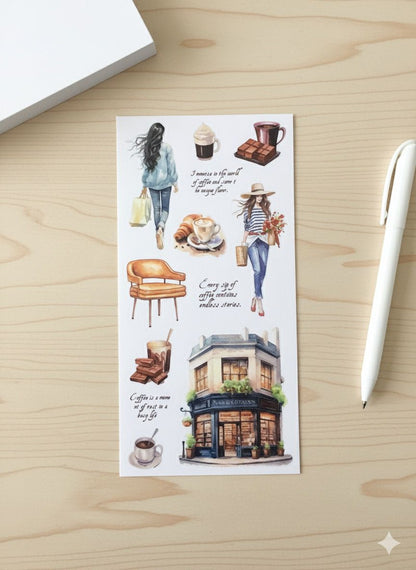 I immerse in the world
of coffee and savor t
he unique flavor.
Every sip of
coffee contains
endless stories.
Coffee is a mome
nt of rest in a
busy life